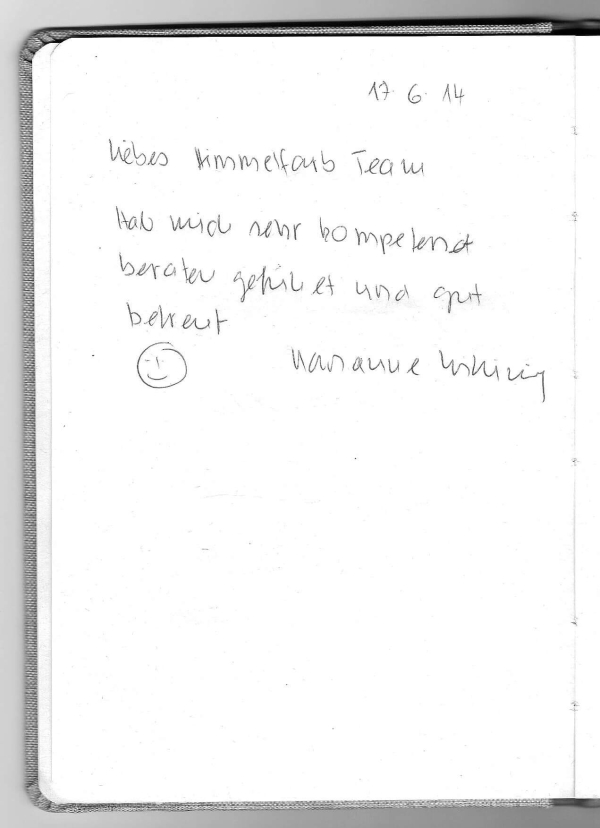 17 6 14
Liebes Himmelfarb Team
Hab mich sehr kompetent
beraten gefühlt und gut
betreut
Marianne